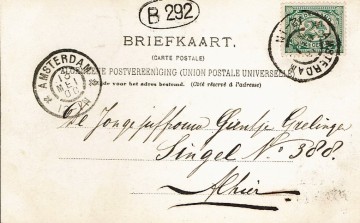 B 292
BRIEFKAART.
(CARTE POSTALE)
ALGEMEENE POSTVEREENIGING (UNION POSTALE UNIVERSELLE)
Zijde voor het adres bestemd. (Côté réservé à l'adresse)
AMSTERDAM
De Jongejuffrouw Gientje Grelinge
Singel No 388.
Alhier